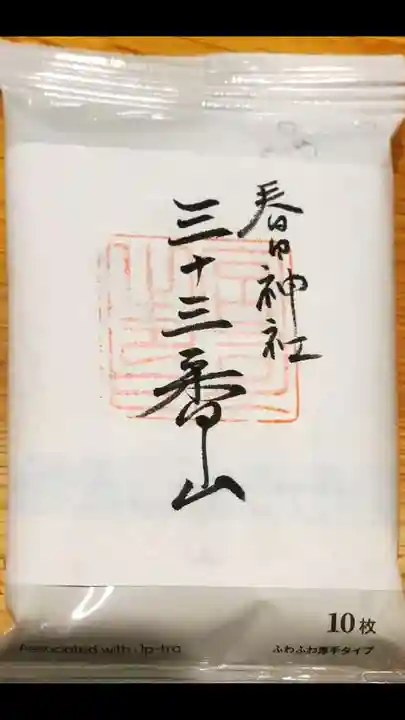 春日神社
三十三番山
10枚
Associated with :
ふわふわ厚手タイプ